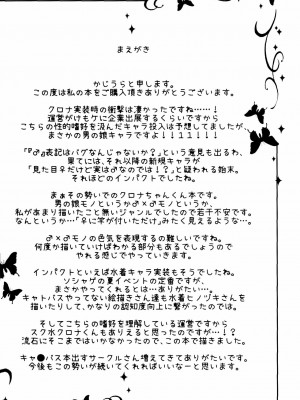 まえがき
かじうらと申します。
この度は私の本をご購入頂きありがとうございます。
クロナ実装時の衝撃は凄かったですね……！
運営がけもケに企業出展するくらいですから
こちらの性的嗜好を汲んだキャラ投入は予想してましたが、
まさかの男の娘キャラですよ！！！！！！！
『『♂』表記はバグなんじゃないか？』という意見も出るわ、
果てには、それ以降の新規キャラが
「見た目♀だけど実は♂なのでは！？」と疑われる始末。
それほどのインパクトでしたね。
まぁその勢いでのクロナちゃんくん本です。
男の娘モノというか♂×♂モノというか、
私があまり描いたこと無いジャンルでしたので若干不安です。
なんというか…「♀に竿が付いただけ」みたく見えるような…。
♂×♂モノの色気を表現するの難しいですね。
何度か描いていけばわかる部分もあるでしょうので
やれる感じでやっていきます。
インパクトといえば水着キャラ実装もそうでしたね。
ソシャゲの夏イベントの定番ですが、
まさかやってくれるとは…ありがたい…。
キャトバスやってない絵描きさん達も水着ヒノヅキさんを
描いたりして、かなりの認知度向上に繋がったのでは。
そしてこちらの嗜好を理解している運営ですから
スク水クロナくんもありえると思ったのですが…！
流石にそこまではいかなかったので、この本で描きました。
キャ●バス本出すサークルさん増えてきてありがたいです。
今後もこの勢いが続いてくれればいいなーと思います。